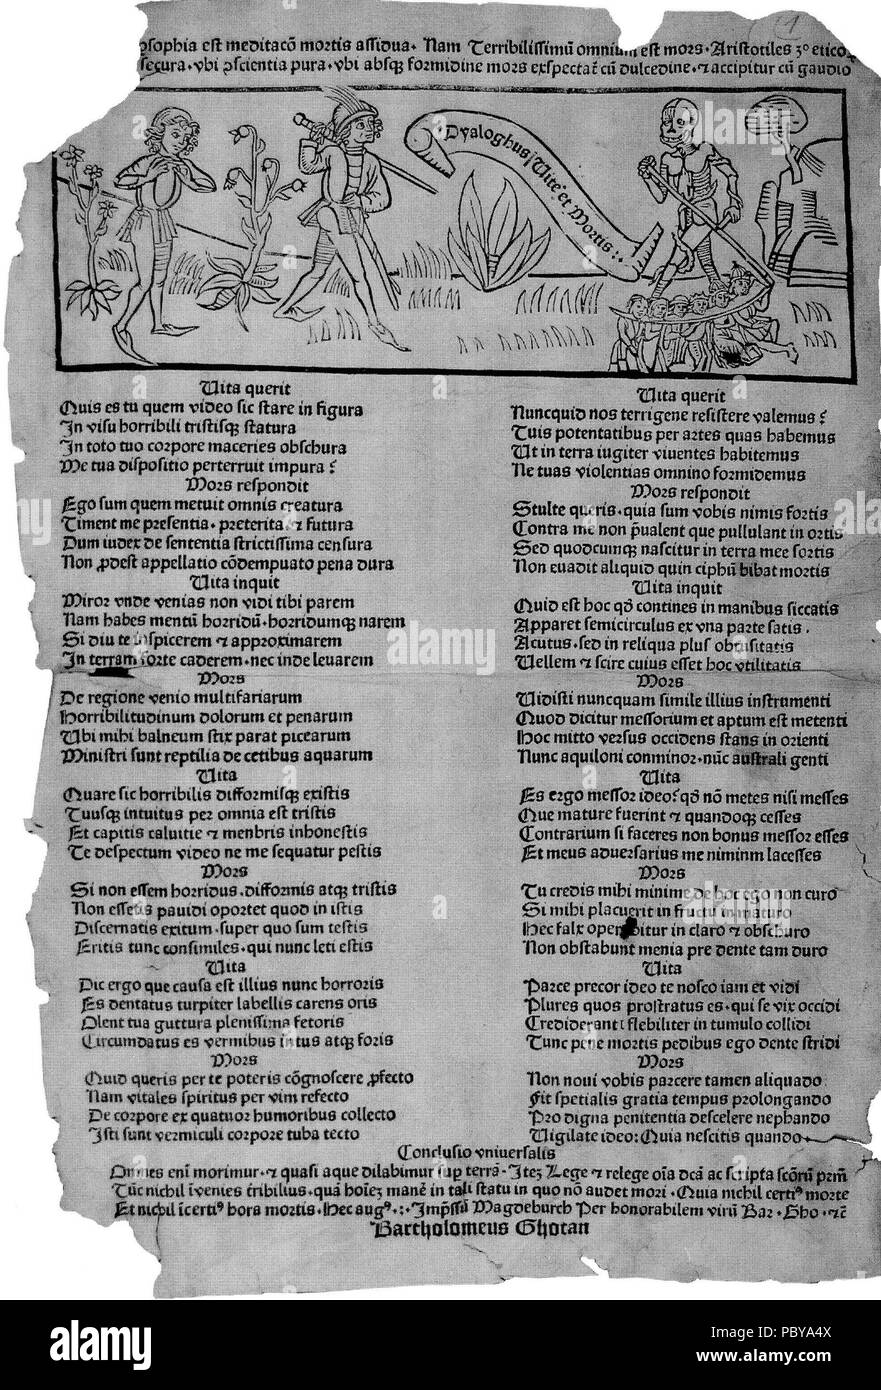 ꝓsophia est meditacō mortis assidua. Nam Terribilissimū omnium est mors. Aristotiles 3º etico
secura. vbi ꝯscientia pura. vbi absqꝫ formidine mors exspectat̄ cū dulcedine. ⁊ accipitur cū gaudio
Dyaloghus Vite et Mortis:.
Vita querit
Quis es tu quem video sic stare in figura
In visu horribili tristisqꝫ statura
In toto tuo corpore maceries obschura
Me tua dispositio perterruit impura?
Mors respondit
Ego sum quem metuit omnis creatura
Timent me presentia. preterita. ⁊ futura
Dum iudex de sententia strictissima censura
Non ꝓdest appellatio cōdempuato pena dura
Vita inquit
Miror vnde venias non vidi tibi parem
Nam habes mentū horridū. horridumqꝫ narem
Si diu te inspicerem ⁊ approximarem
In terram forte caderem. nec inde leuarem
Mors
De regione venio multifariarum
Horribilitudinum dolorum et penarum
Vbi mihi balneum stix parat picearum
Ministri sunt reptilia de cetibus aquarum
Vita
Quare sic horribilis difformisqꝫ existis
Tuusqꝫ intuitus per omnia est tristis
Et capitis caluitie ⁊ menbris inhonestis
Te despectum video ne me sequatur pestis
Mors
Si non essem horridus. difformis atqꝫ tristis
Non essetis pauidi oportet quod in istis
Discernatis exitum. super quo sum testis
Eritis tunc consimiles. qui nunc leti estis
Vita
Dic ergo que causa est illius nunc horroris
Es dentatus turpiter labellis carens oris
Olent tua guttura plenissima fetoris
Circumdatus es vermibus intus atqꝫ foris
Mors
Quid queris per te poteris cōgnoscere ꝓfecto
Nam vitales spiritus per vim refecto
De corpore ex quatuor humoribus collecto
Isti sunt vermiculi corpore tuba tecto
Vita querit
Nuncquid nos terrigene resistere valemus?
Tuis potentatibus per artes quas habemus
Ut in terra iugiter viuentes habitemus
Ne tuas violentias omnino formidemus
Mors respondit
Stulte queris. quia sum vobis nimis fortis
Contra me non p̄ualent que pullulant in ortis
Sed quodcumqꝫ nascitur in terra mee sortis
Non euadit aliquid quin ciphū bibat mortis
Vita inquit
Quid est hoc qđ contines in manibus siccatis
Apparet semicirculus ex vna parte satis.
Acutus. sed in reliqua plus obtusitatis
Vellem ⁊ scire cuius esset hoc vtilitatis
Mors
Vidisti nuncquam simile illius instrumenti
Quod dicitur messorium et aptum est metenti
Hoc mitto versus occidens stans in orienti
Nunc aquiloni conminor. nūc australi genti
Vita
Es ergo messor ideo? qđ nō metes nisi messes
Que mature fuerint ⁊ quandoqꝫ cesses
Contrarium si faceres non bonus messor esses
Et meus aduersarius me nimium lacesses
Mors
Tu credis mihi minime de hoc ego non curo
Si mihi placuerit in fructu inmaturo
Hec falx operabitur in claro ⁊ obschuro
Non obstabunt menia pre dente tam duro
Vita
Parce precor ideo te nosco iam et vidi
Plures quos prostratus es. qui se vix occidi
Crediderant flebiliter in tumulo collidi
Tunc pene mortis pedibus ego dente stridi
Mors
Non noui vobis parcere tamen aliquado
Fit spetialis gratia tempus prolongando
Pro digna penitentia descelere nephando
Vigilate ideo: Quia nescitis quando
Conclusio vniuersalis
Omnes enī morimur. ⁊ quasi aque dilabimur sup̄ terrā. Iteꝫ Lege ⁊ relege oīa dc̄a ac scripta sc̄orū
Tūc nichil īvenies t̄ribilius. quā hoīeꝫ manē in tali statu in quo nō audet mori. Quia nichil certiꝰ morte
Et nichil īcertiꝰ hora mortis. Hec augꝰ.:. Imp̄ssū Magdeburch Per honorabilem virū Bar. Gho. ⁊c̄
Bartholomeus Ghotan
alamy
Image ID: PBYA4X
www.alamy.com